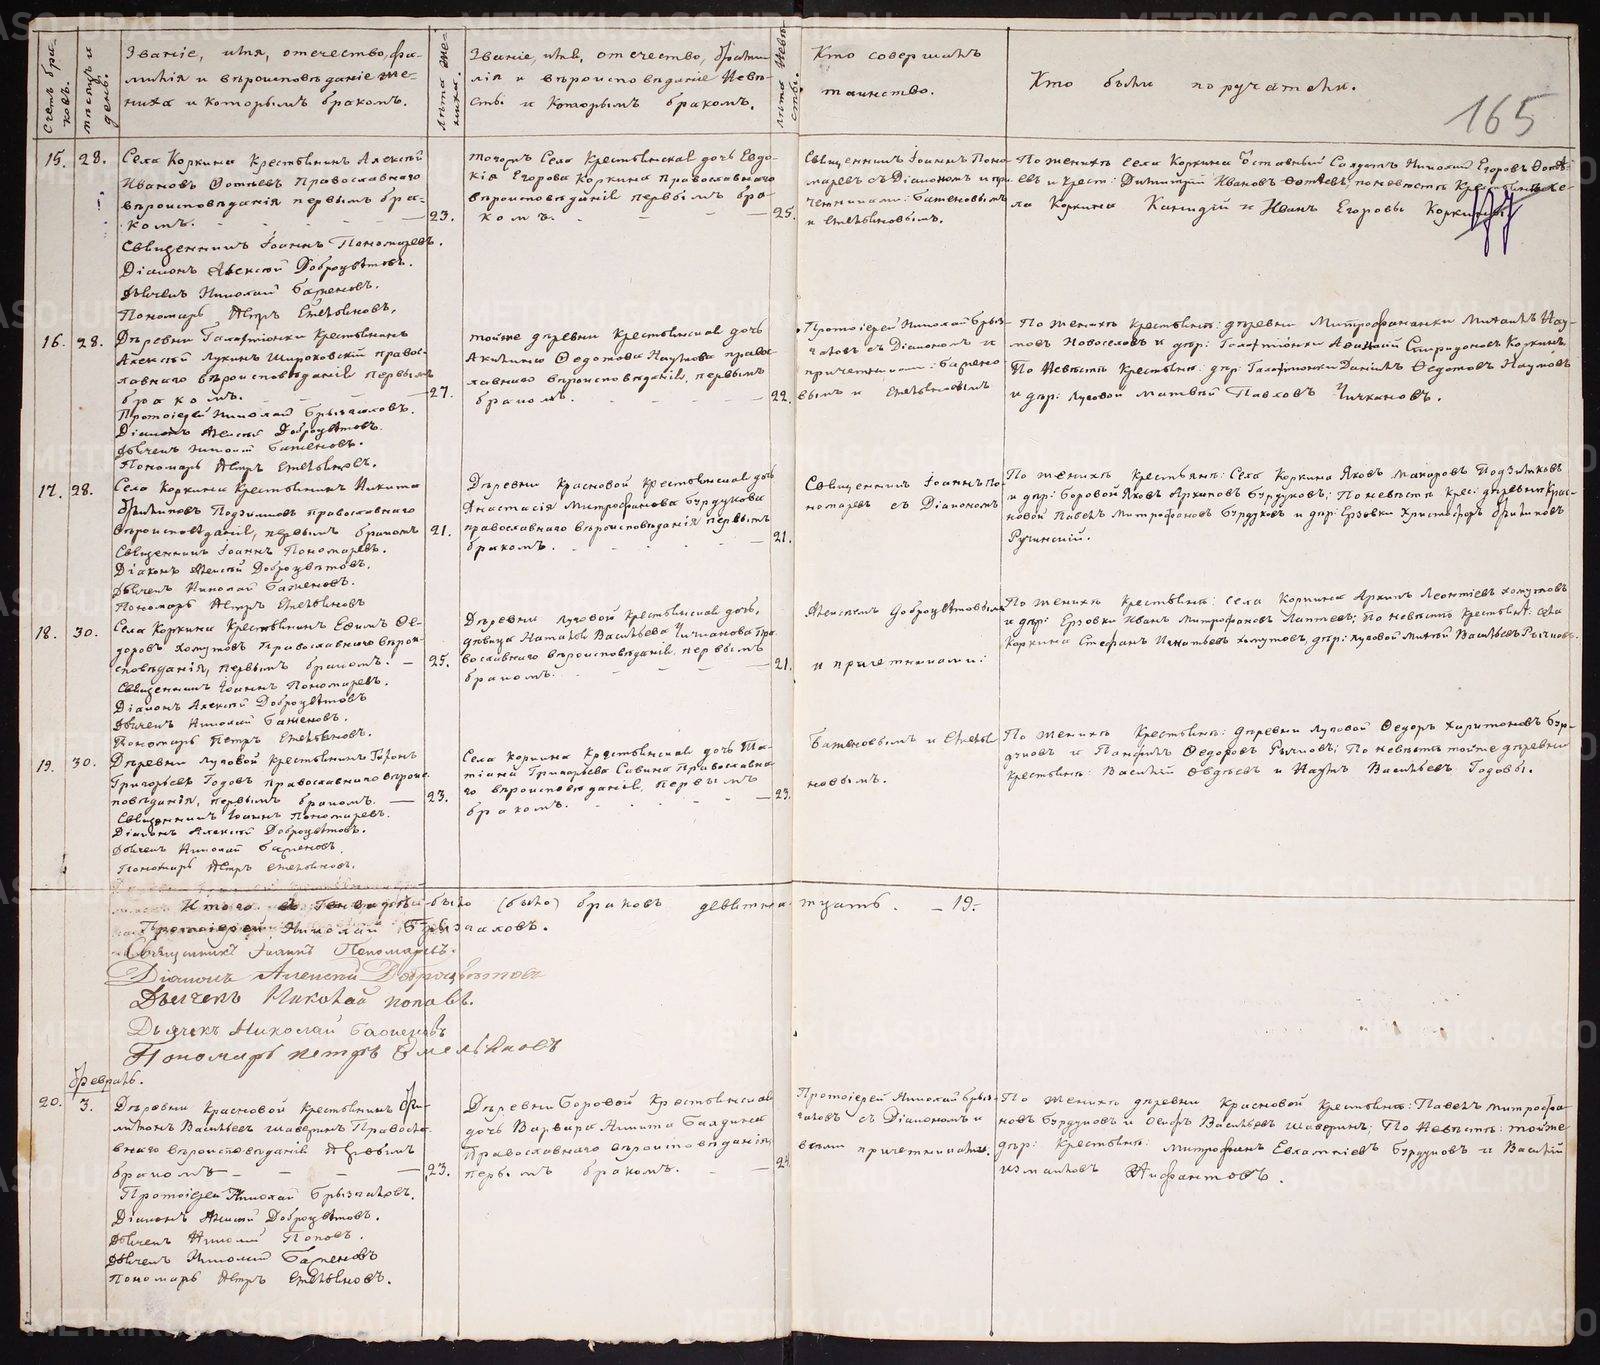 Счетъ бра-
ковъ.
Мѣсяцъ и
день.
Званіе, имя, отечество, фа-
милія и вѣроисповѣданіе же-
ниха и которымъ бракомъ.
Лѣта же-
ниха.
Званіе, имя, отечество, фами-
лія и вѣроисповѣданіе невѣ-
сты и которымъ бракомъ.
Лѣта невѣ-
сты.
Кто совершалъ
таинство.
Кто были поручатели.
165
15. 28.
Села Коркина Крестьянинъ Алексѣй
Ивановъ Ѳотѣевъ Православнаго
вѣроисповѣданія первымъ бра-
комъ. 23.
Священникъ Іоаннъ Пономаревъ.
Діаконъ Алексѣй Доброцвѣтовъ.
Дьячекъ Николай Баженовъ.
Пономарь Петръ Емельяновъ.
тогожъ Села Крестьянская дочь Евдо-
кія Егорова Коркина Православнаго
вѣроисповѣданія первымъ бра-
комъ. 25.
Священникъ Іоаннъ Поно-
маревъ съ Діакономъ и при-
четниками: Баженовымъ
и Емельяновымъ.
По женихѣ села Коркина Отставный Солдатъ Николай Егоровъ Ѳотѣ-
евъ и Крест: Димитрій Ивановъ Ѳотѣевъ; по невѣстѣ Крестьяне се-
ла Коркина и Иванъ Егоровы Коркины.
16. 28.
Деревни Галафтіонки Крестьянинъ
Алексѣй Лукинъ Широковскій право-
славнаго вѣроисповѣданія первымъ
бракомъ. 27.
Протоіерей Николай Брызгаловъ.
Діаконъ Алексѣй Доброцвѣтовъ.
Дьячекъ Николай Баженовъ.
Пономарь Петръ Емельяновъ.
тойже деревни Крестьянская дочь
Акилина Ѳедотова Наумова право-
славнаго вѣроисповѣданія, первымъ
бракомъ. 22.
Протоіерей Николай Брыз-
галовъ съ Діакономъ и
причетниками: Бажено-
вымъ и Емельяновымъ
По женихѣ Крестьяне: деревни Митрофанавки Михаилъ Нау-
мовъ Новоселовъ и дер: Галафтіонки Афанасій Спиридоновъ Коркинъ,
По Невѣстѣ Крестьяне: дер: Галафтіонки Даніилъ Ѳедотовъ Наумовъ
и дер: Луговой Матвѣй Павловъ Чичкановъ.
17. 28.
Села Коркина Крестьянинъ Никита
Филиповъ Подзиновъ православнаго
вѣроисповѣданія, первымъ бракомъ 21.
Священникъ Іоаннъ Пономаревъ.
Діаконъ Алексѣй Доброцвѣтовъ.
Дьячекъ Николай Баженовъ.
Пономарь Петръ Емельяновъ
Деревни Красновой Крестьянская дочь
Анастасія Митрофанова Бурдукова
православнаго вѣроисповѣданія первымъ
бракомъ. 21.
Священникъ Іоаннъ По-
номаревъ съ Діакономъ
По женихѣ Крестьяне: Села Коркина Яковъ Макаровъ
и дер: Боровой Яковъ Архиповъ Бурдуковъ; По невѣстѣ Крес: деревни Крас-
новой Павелъ Митрофановъ Бурдуковъ и дер: Ерзовки Христофоръ Филиповъ
Ручинскій.
18. 30.
Села Коркина Крестьянинъ Ефимъ Ѳе-
доровъ Хомутовъ Православнаго вѣрои-
сповѣданія, первымъ бракомъ. 25.
Священникъ Іоаннъ Пономаревъ.
Діаконъ Алексѣй Доброцвѣтовъ
Дьячекъ Николай Баженовъ.
Пономарь Петръ Емельяновъ.
Деревни Луговой Крестьянская дочь,
дѣвица Наталья Васильева Чичканова Пра-
вославнаго вѣроисповѣданія, первымъ
бракомъ. 21.
Алексѣемъ Доброцвѣтовымъ
и причетниками:
По женихѣ Крестьяне: села Коркина Архипъ Леонтіевъ Хомутовъ
и дер: Ерзовки Иванъ Митрофановъ Лаптевъ; По невѣстѣ Крестьяне: села
Коркина Стефанъ Игнатьевъ Хомутовъ, дер: Луговой Васильевъ Рычковъ.
19. 30.
Деревни Луговой Крестьянинъ
Григорьевъ Годовъ православнаго вѣроис-
повѣданія, первымъ бракомъ. 23.
Священникъ Іоаннъ Пономаревъ.
Діаконъ Алексѣй Доброцвѣтовъ.
Дьячекъ Николай Баженовъ.
Пономарь Петръ Емельяновъ.
Села Коркина Крестьянская дочь Та-
тіана Григорьева Савина Православна-
го вѣроисповѣданія, первымъ
бракомъ. 23.
Баженовымъ и Емелья-
новымъ.
По женихѣ Крестьяне: деревни Луговой Ѳедоръ Харитоновъ Бур-
дуковъ и Панфилъ Ѳедоровъ Рычковъ; По невѣстѣ тойже деревни
Крестьяне: Василій Авдѣевъ и Наумъ Васильевъ Годовы.
Итого въ Генварѣ было (было) браковъ девятнатцать. — 19.
Протоіерей Николай Брызгаловъ.
Священникъ Іоаннъ Пономаревъ.
Діаконъ Алексѣй Доброцвѣтовъ
Дьячекъ Николай Поповъ.
Дьячекъ Николай Баженовъ
Пономарь Петръ Емельяновъ
Февраль.
20. 3.
Деревни Красновой Крестьянинъ Фи-
лимонъ Васильевъ Шаверинъ Правосла-
внаго вѣроисповѣданія первымъ
бракомъ 23.
Протоіерей Николай Брызгаловъ.
Діаконъ Алексѣй Доброцвѣтовъ.
Дьячекъ Николай Поповъ.
Дьячекъ Николай Баженовъ
Пономарь Петръ Емельяновъ.
Деревни Боровой Крестьянская
дочь Варвара Никитина Балдина
Православнаго вѣроисповѣданія,
первымъ бракомъ. 24.
Протоіерей Николай Брыз-
галовъ съ Діакономъ и
всѣми причетниками.
По женихѣ деревни Красновой Крестьяне: Павелъ Митрофа-
новъ Бурдуковъ и Осифъ Васильевъ Шаверинъ; По Невѣстѣ: тойже
дер: Крестьяне: Митрофанъ Евлампіевъ Бурдуковъ и Василій
Измаиловъ Анфантовъ.
METRIKI.GASO-URAL.RU